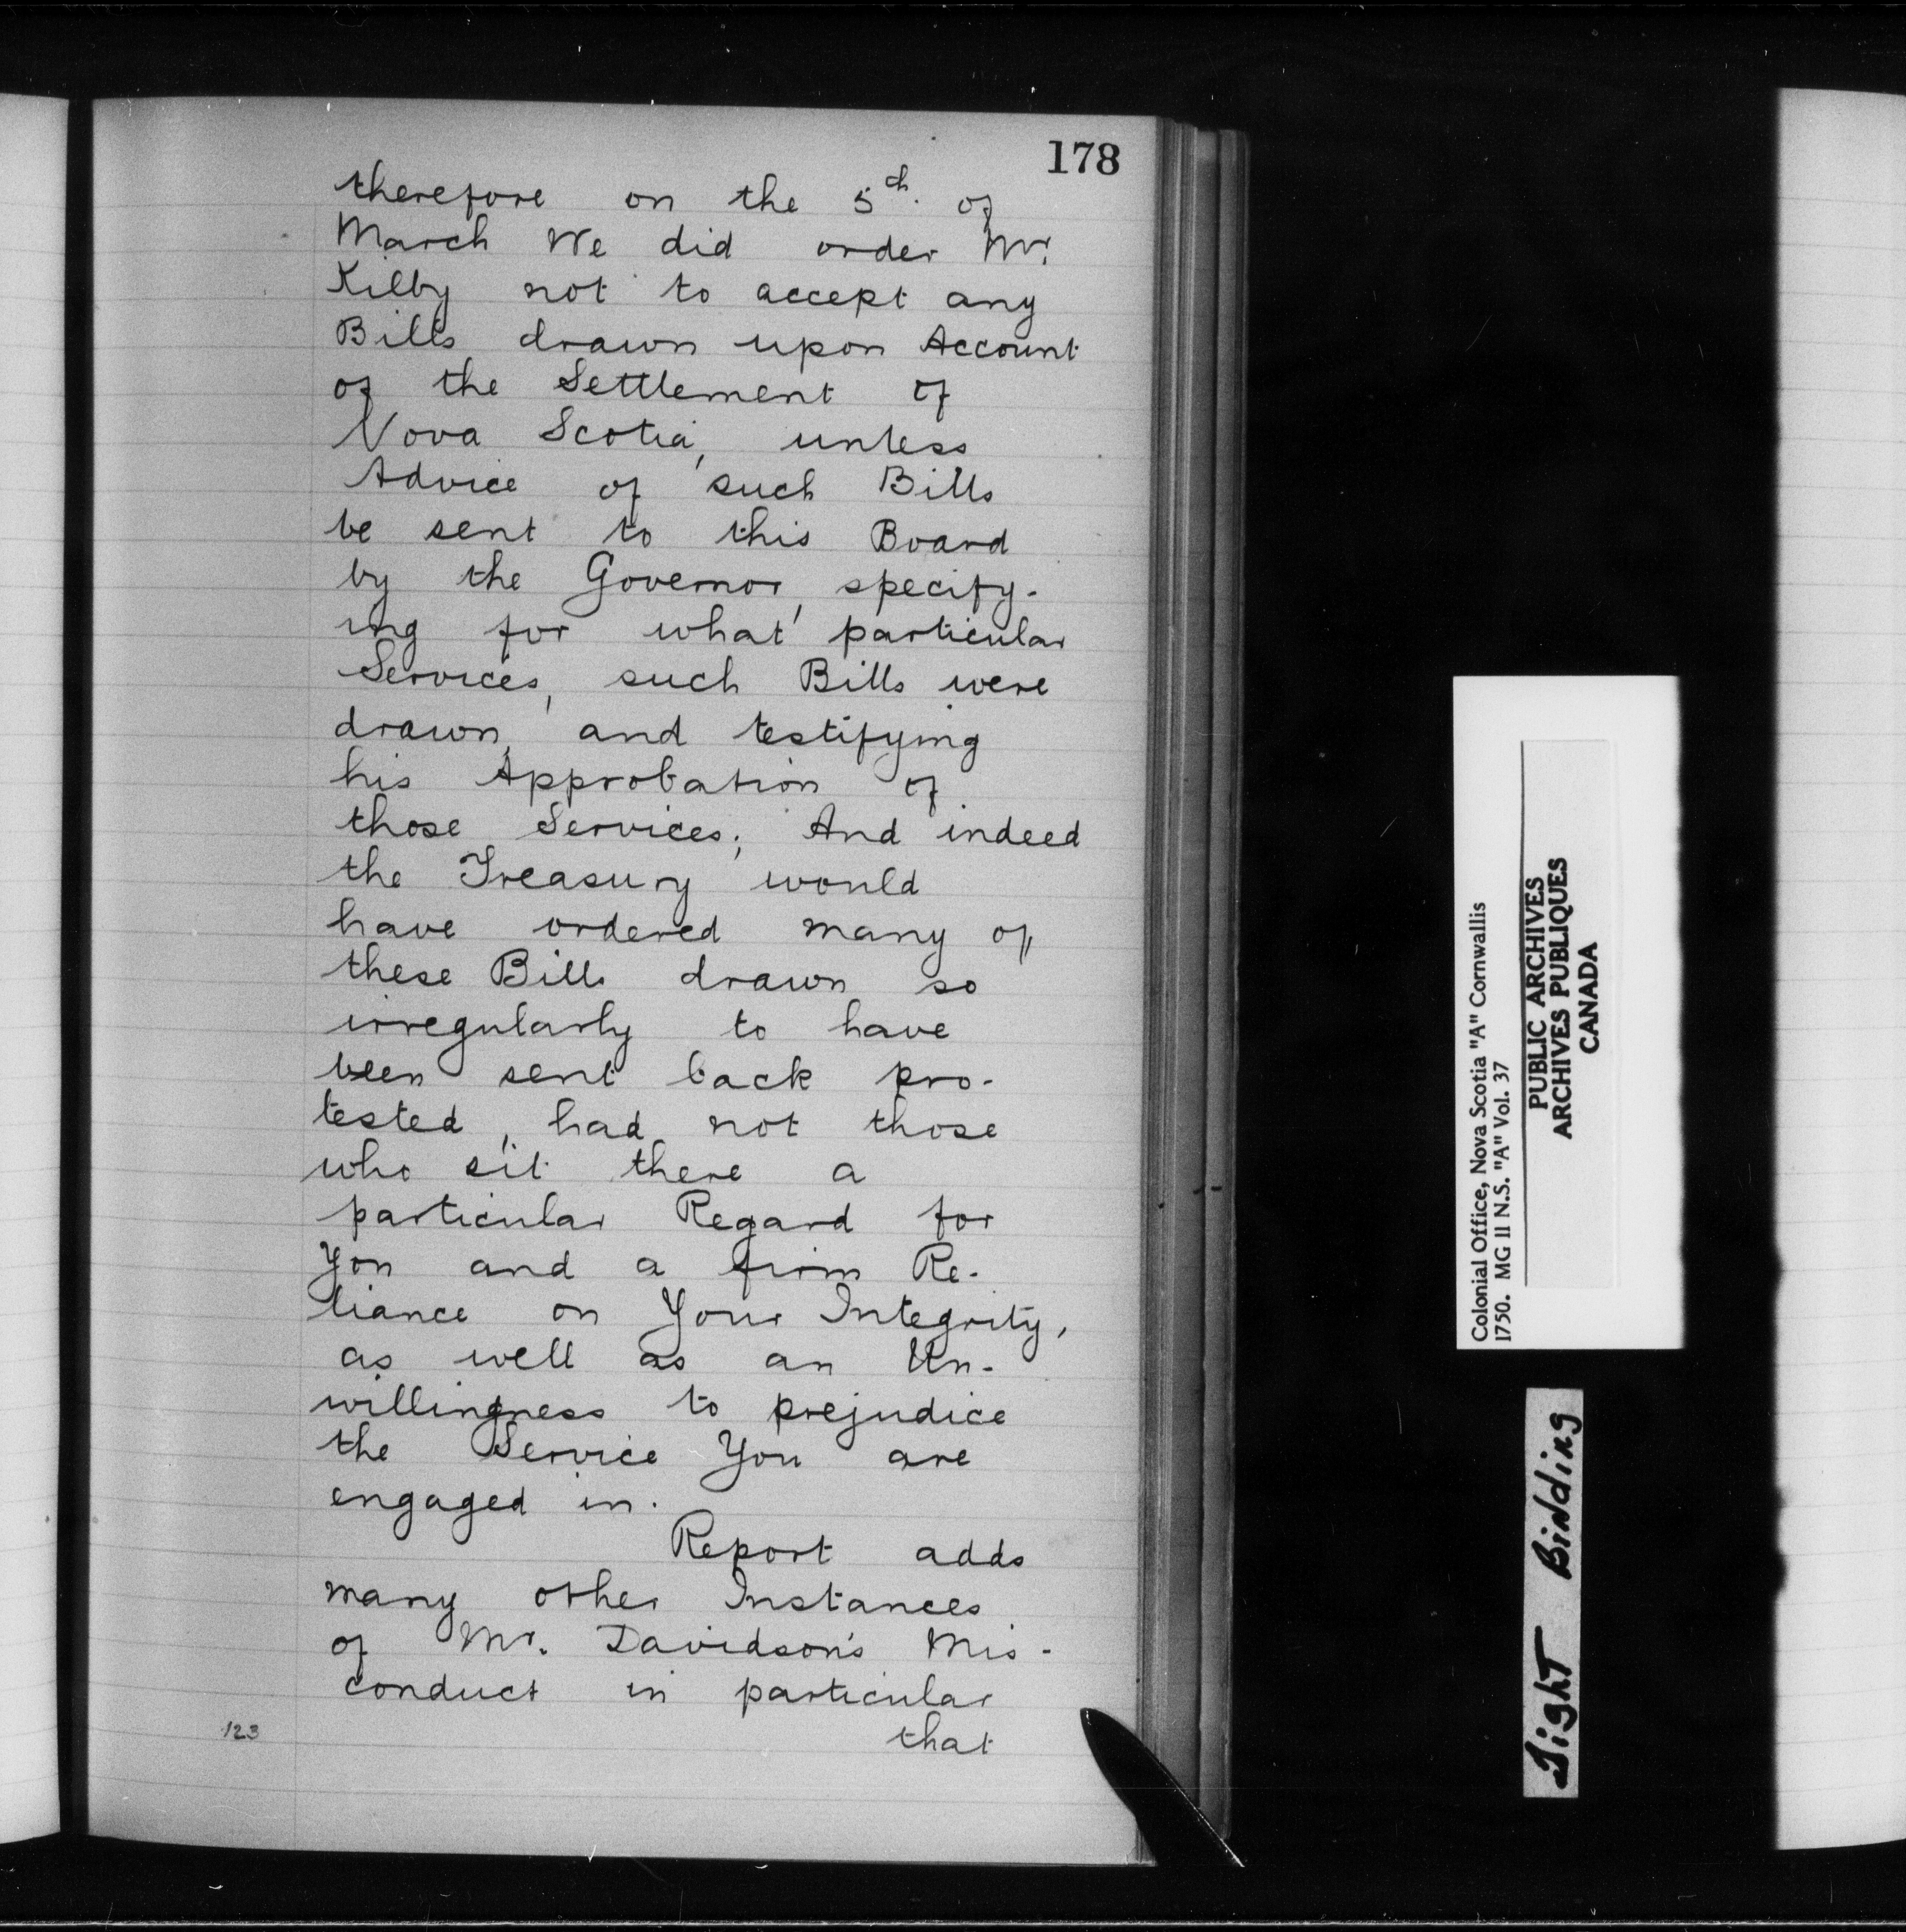 178
therefore on the 5th. of
March We did order Mr.
Kilby not to accept any
Bills drawn upon Account
of the Settlement of
Nova Scotia, unless
Advice of such Bills
be sent to this Board
by the Governor, specify-
ing for what particular
Services, such Bills were
drawn, and testifying
his Approbation of
those Services; And indeed
the Treasury would
have ordered many of
these Bills drawn so
irregularly to have
been sent back pro-
tested, had not those
who sit there a
particular Regard for
You and a firm Re-
liance on Your Integrity,
as well as an Un-
willingness to prejudice
the Service You are
engaged in.
Report adds
many other Instances
of Mr. Davidson's Mis-
conduct in particular
that
123
Colonial Office, Nova Scotia "A" Cornwallis
1750. MG 11 N.S. "A" Vol. 37
PUBLIC ARCHIVES
ARCHIVES PUBLIQUES
CANADA
Tight Binding